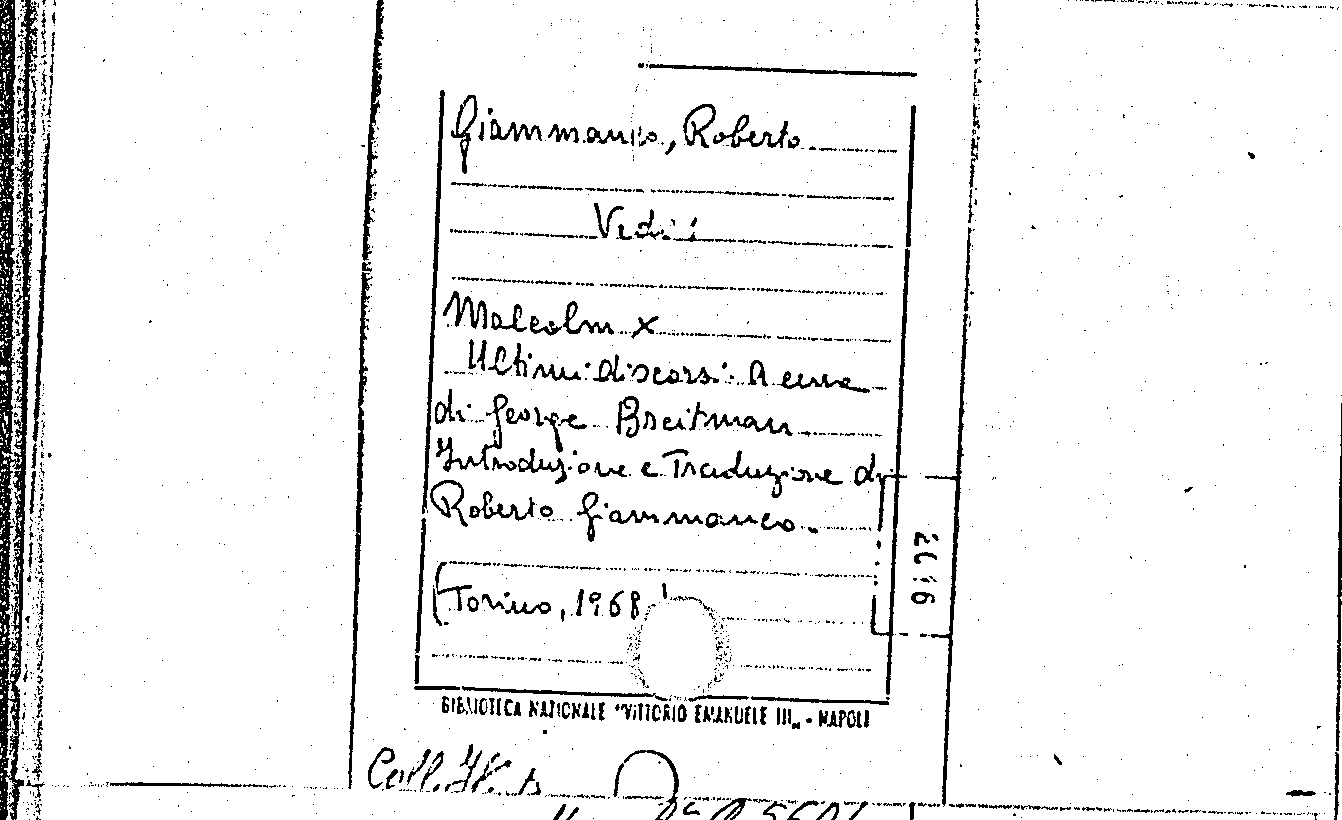 Giammanco, Roberto
Vedi:
Malcolm X
Ultimi discorsi. A cura
di George Breitman
Introduzione e Traduzione di
Roberto Giammanco.
(Torino, 1968
BIBLIOTECA NAZIONALE "VITTORIO EMANUELE III„ - NAPOLI
Coll.